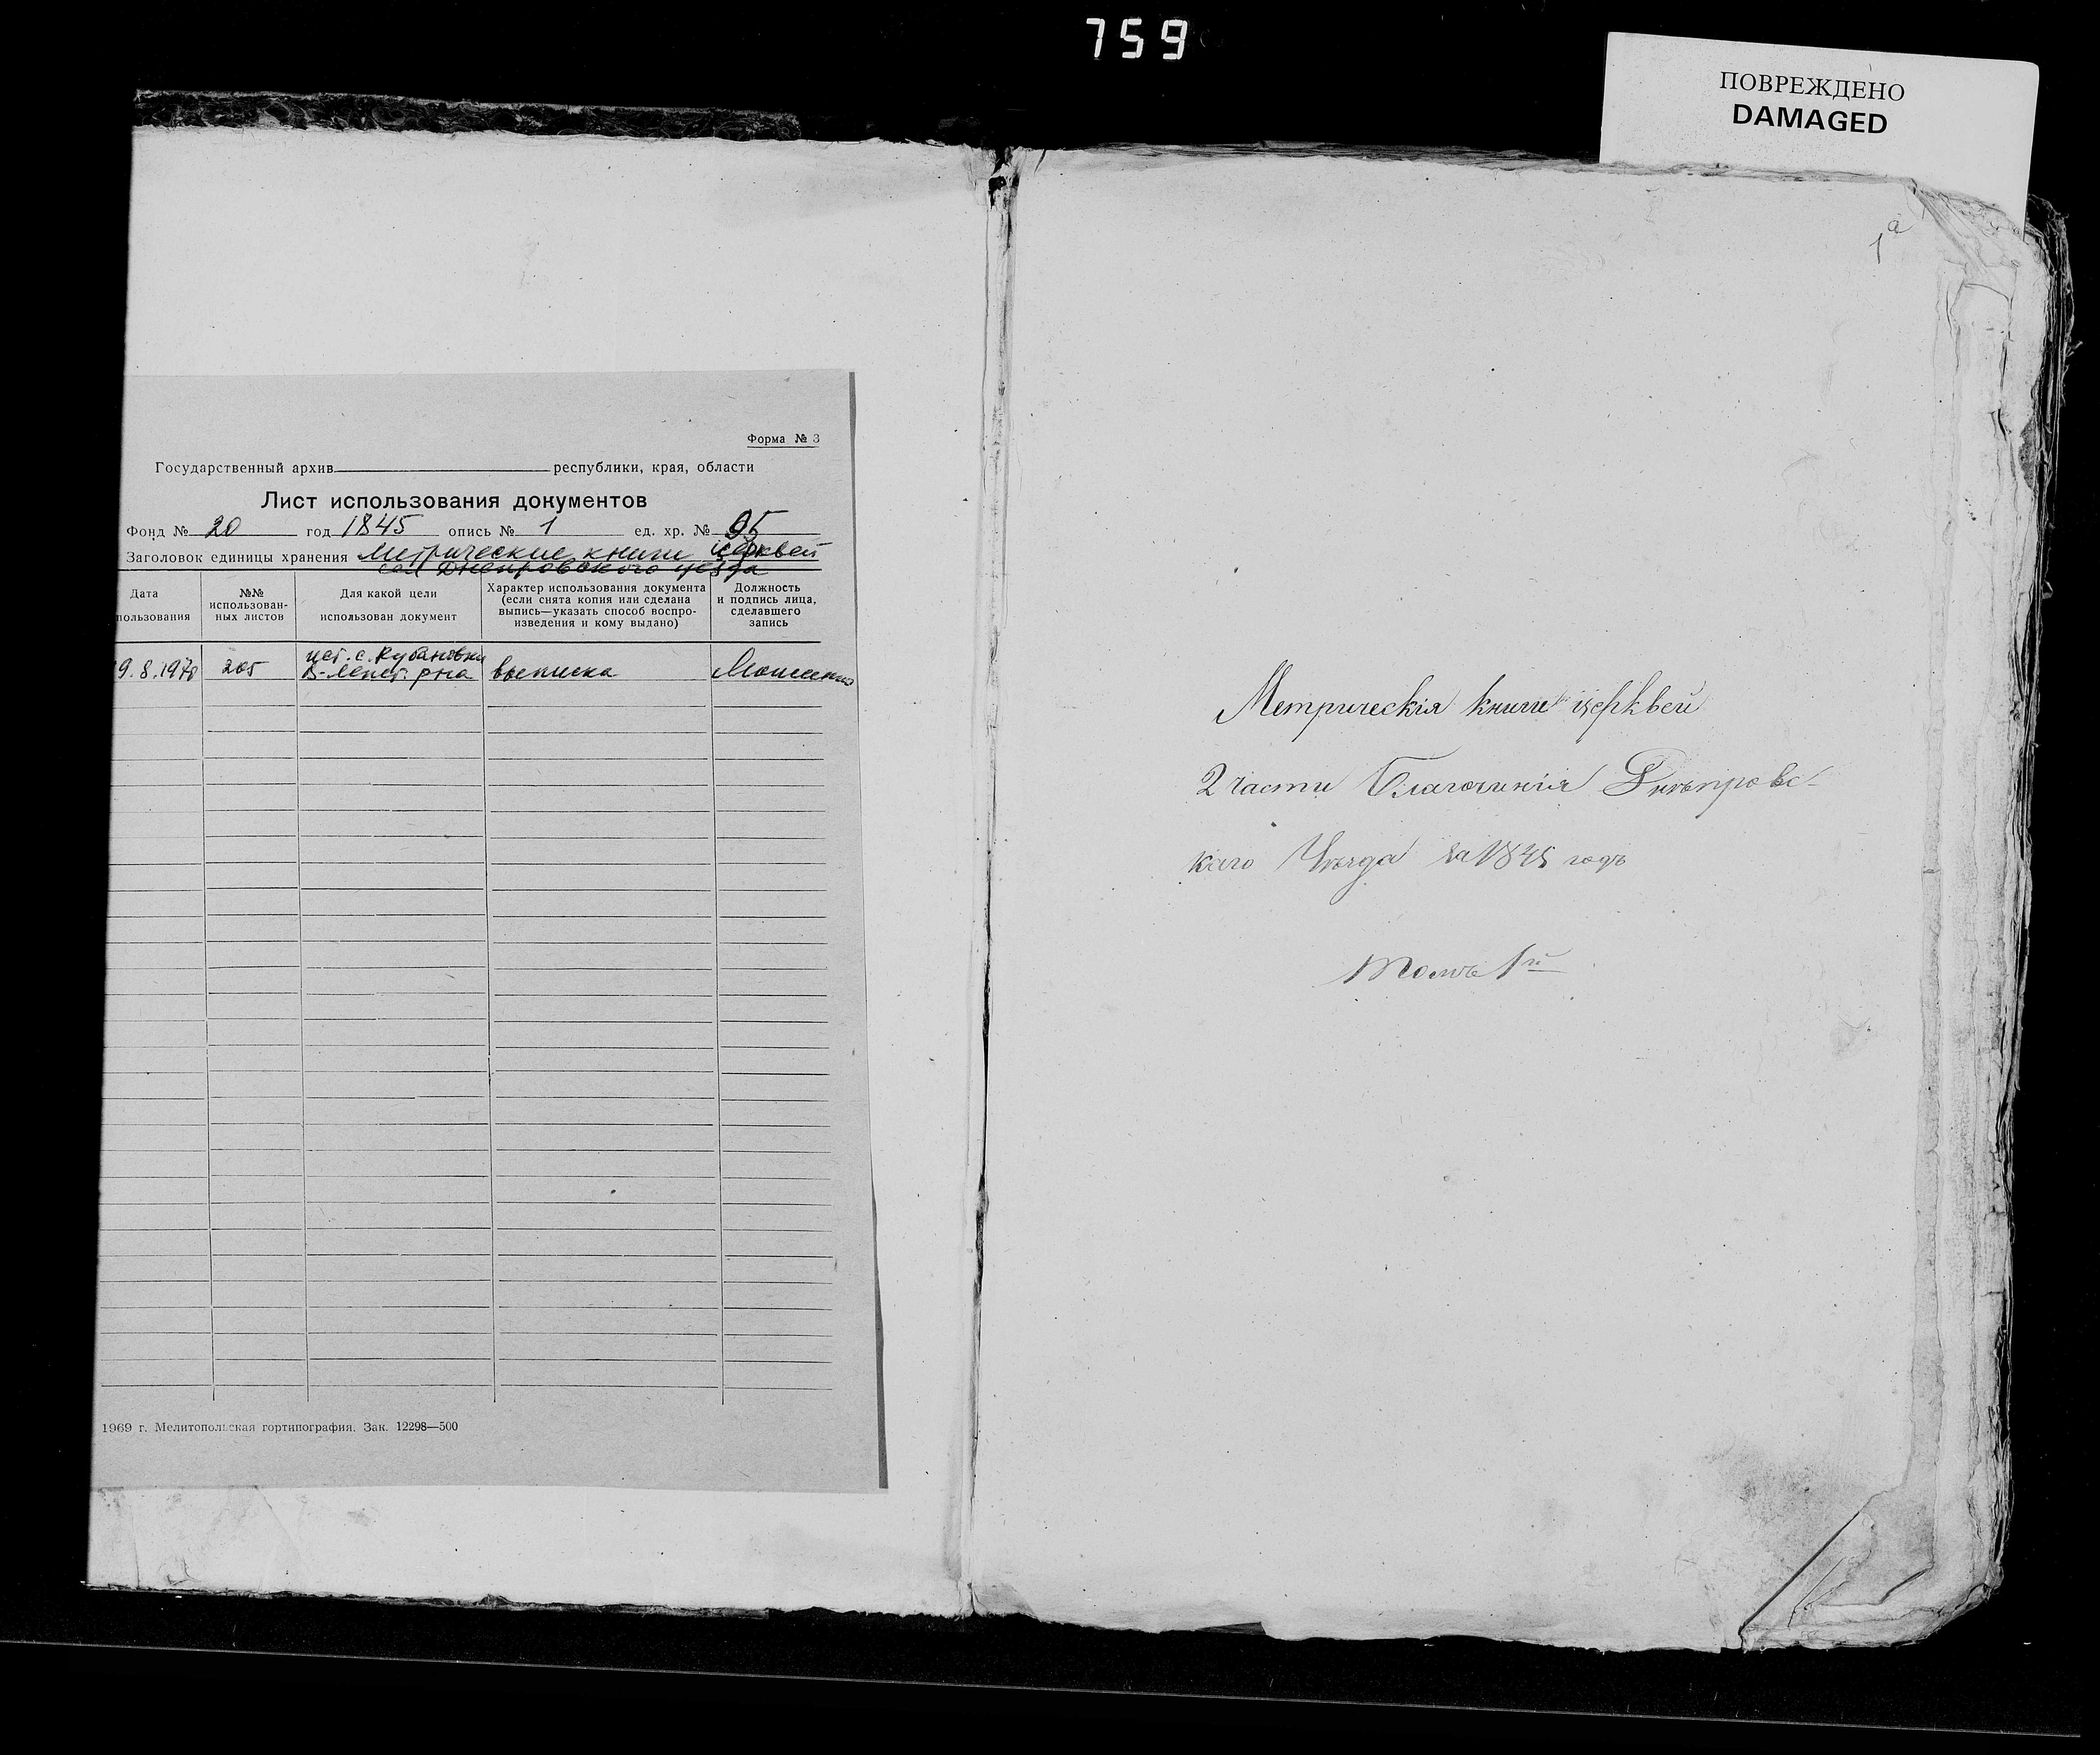 759
ПОВРЕЖДЕНО
DAMAGED
1а
Форма № 3
Государственный архив республики, края, области
Лист использования документов
Фонд № 20 год 1845 опись № 1 ед. хр. № 95
Заголовок единицы хранения Метрические книги церквей
сел Днепровского уезда
Дата
пользования
№№
использован-
ных листов
Для какой цели
использован документ
Характер использования документа
(если снята копия или сделана
выпись—указать способ воспро-
изведения и кому выдано)
Должность
и подпись лица,
сделавшего
запись
ист. с. Рубановки
9.8.1978 205 В-Лепет. р-на выписка
1969 г. Мелитопольская гортипография. Зак. 12298—500
Метрическія книги церквей
2 части Благочинія Днѣпровс-
каго Уѣзда за 1845 годъ
Томъ 1й